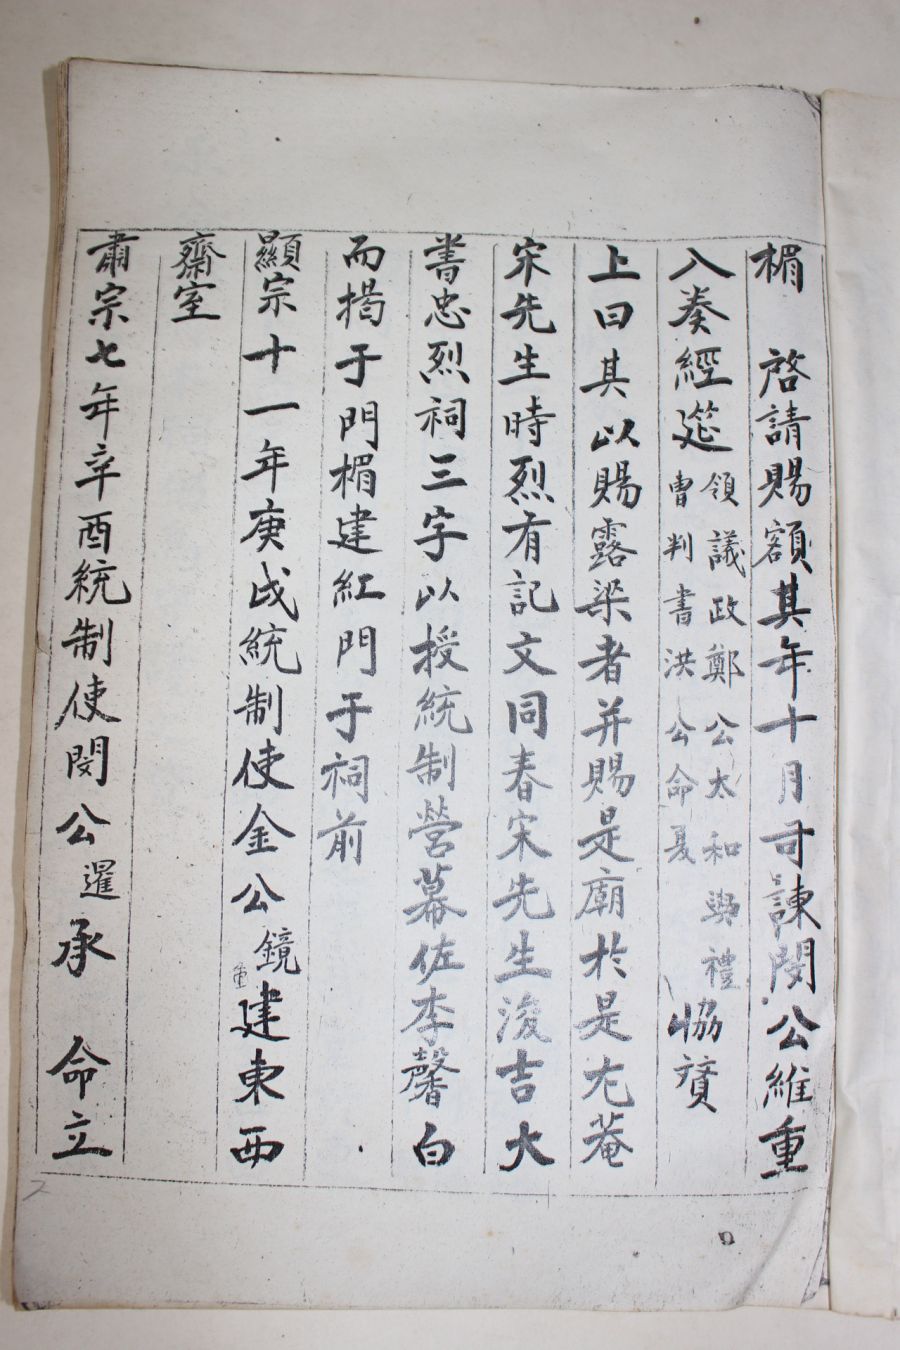 楣 啓請賜額其年十月司諫閔公維重
入奏經筵領議政鄭公太和與禮曹判書洪公命夏協賛
上曰其以賜露梁者并賜是廟於是尤菴
宋先生時烈有記文同春宋先生浚吉大
書忠烈祠三字以授統制營幕佐李馨白
而揭于門楣建紅門于祠前
顯宗十一年庚戌統制使金公鏡建東西
齋室
肅宗七年辛酉統制使閔公暹承 命立